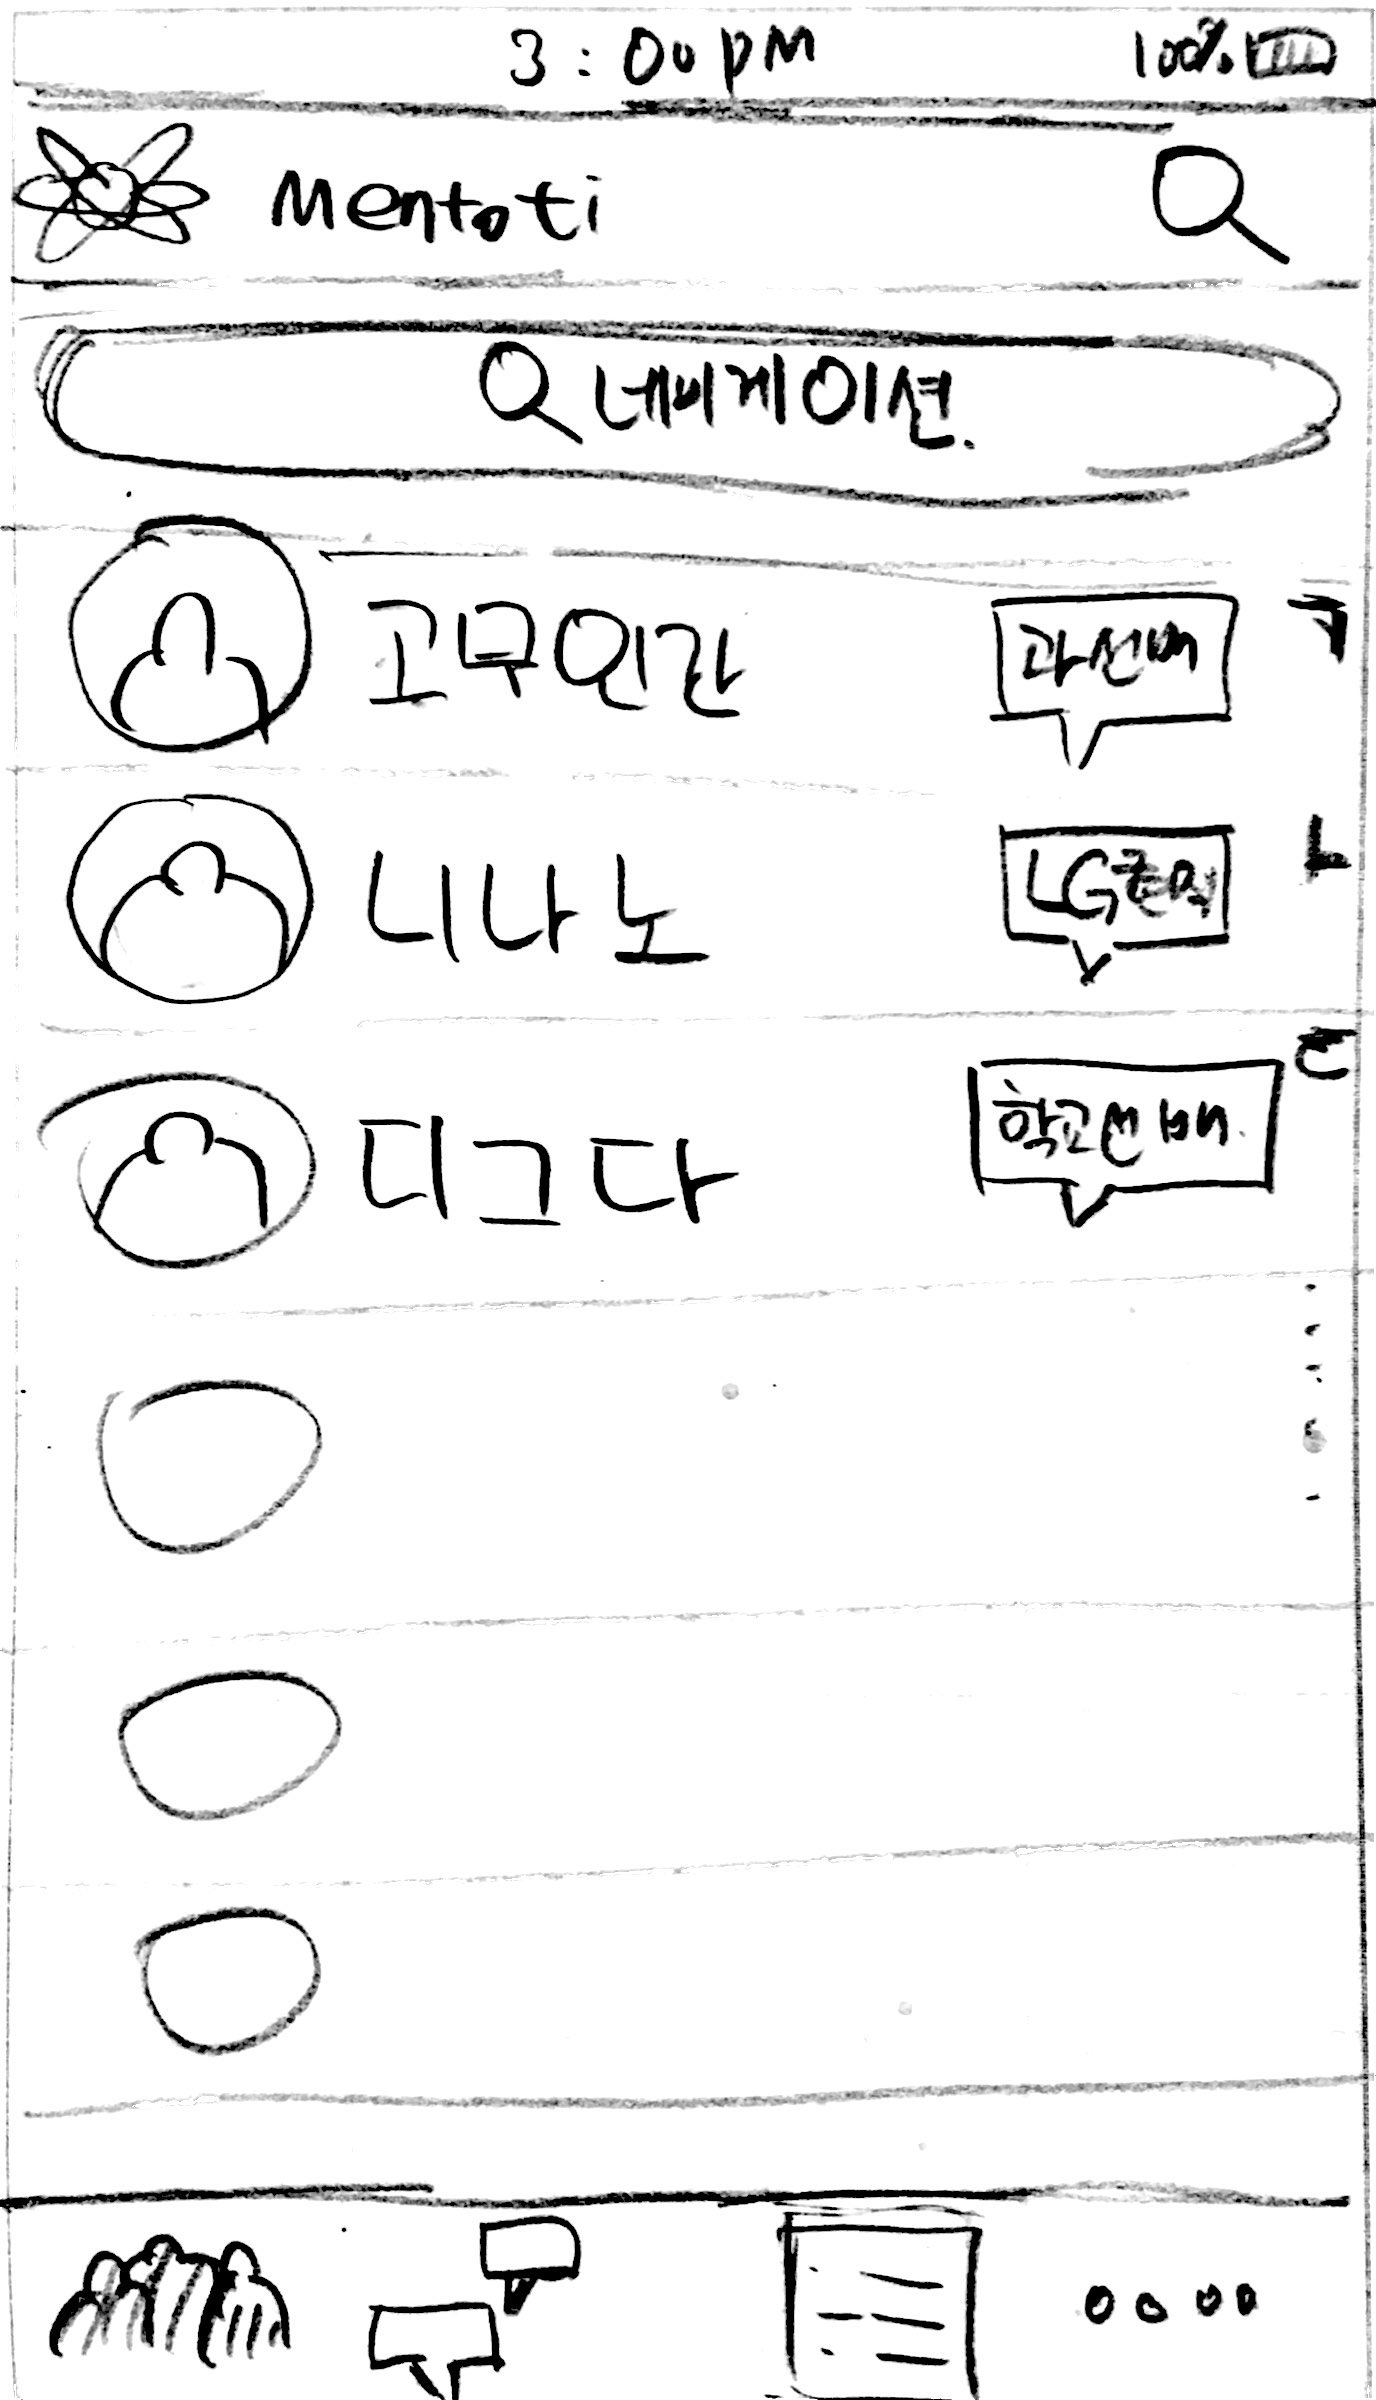 3:00 PM
100%
Mentoti
네비게이션.
고무인간
과선배
ㄱ
니나노
LG
ㄴ
디그다
학교선배.
ㄷ